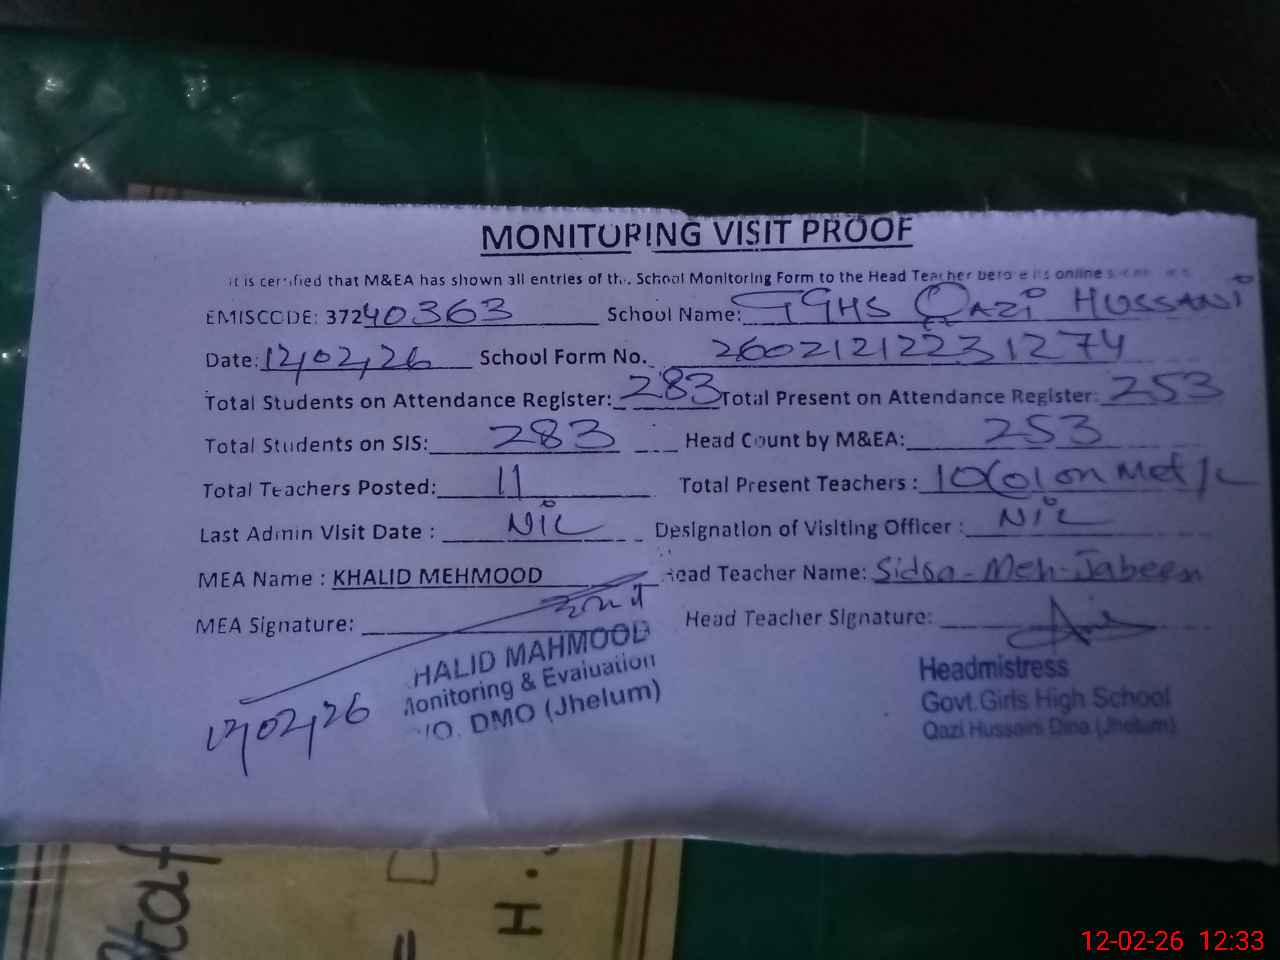 MONITORING VISIT PROOF
It is certified that M&EA has shown all entries of the School Monitoring Form to the Head Teacher before its online
EMISCODE: 37240363 School Name: GGHS QAZI HUSSAINI
Date: 12/02/26 School Form No. 260212122231274
Total Students on Attendance Register: 283 Total Present on Attendance Register: 253
Total Students on SIS: 283 Head Count by M&EA: 253
Total Teachers Posted: 11 Total Present Teachers : 10(01 on Met/L
Last Admin Visit Date : NIL Designation of Visiting Officer : NIL
MEA Name : KHALID MEHMOOD Head Teacher Name: Sidra-Meh-Jabeen
MEA Signature: Head Teacher Signature:
HALID MAHMOOD
Monitoring & Evaluation
O. DMO (Jhelum)
12/02/26
Headmistress
Govt.Girls High School
Qazi Hussaini Dina (Jhelum)
H.
12-02-26 12:33